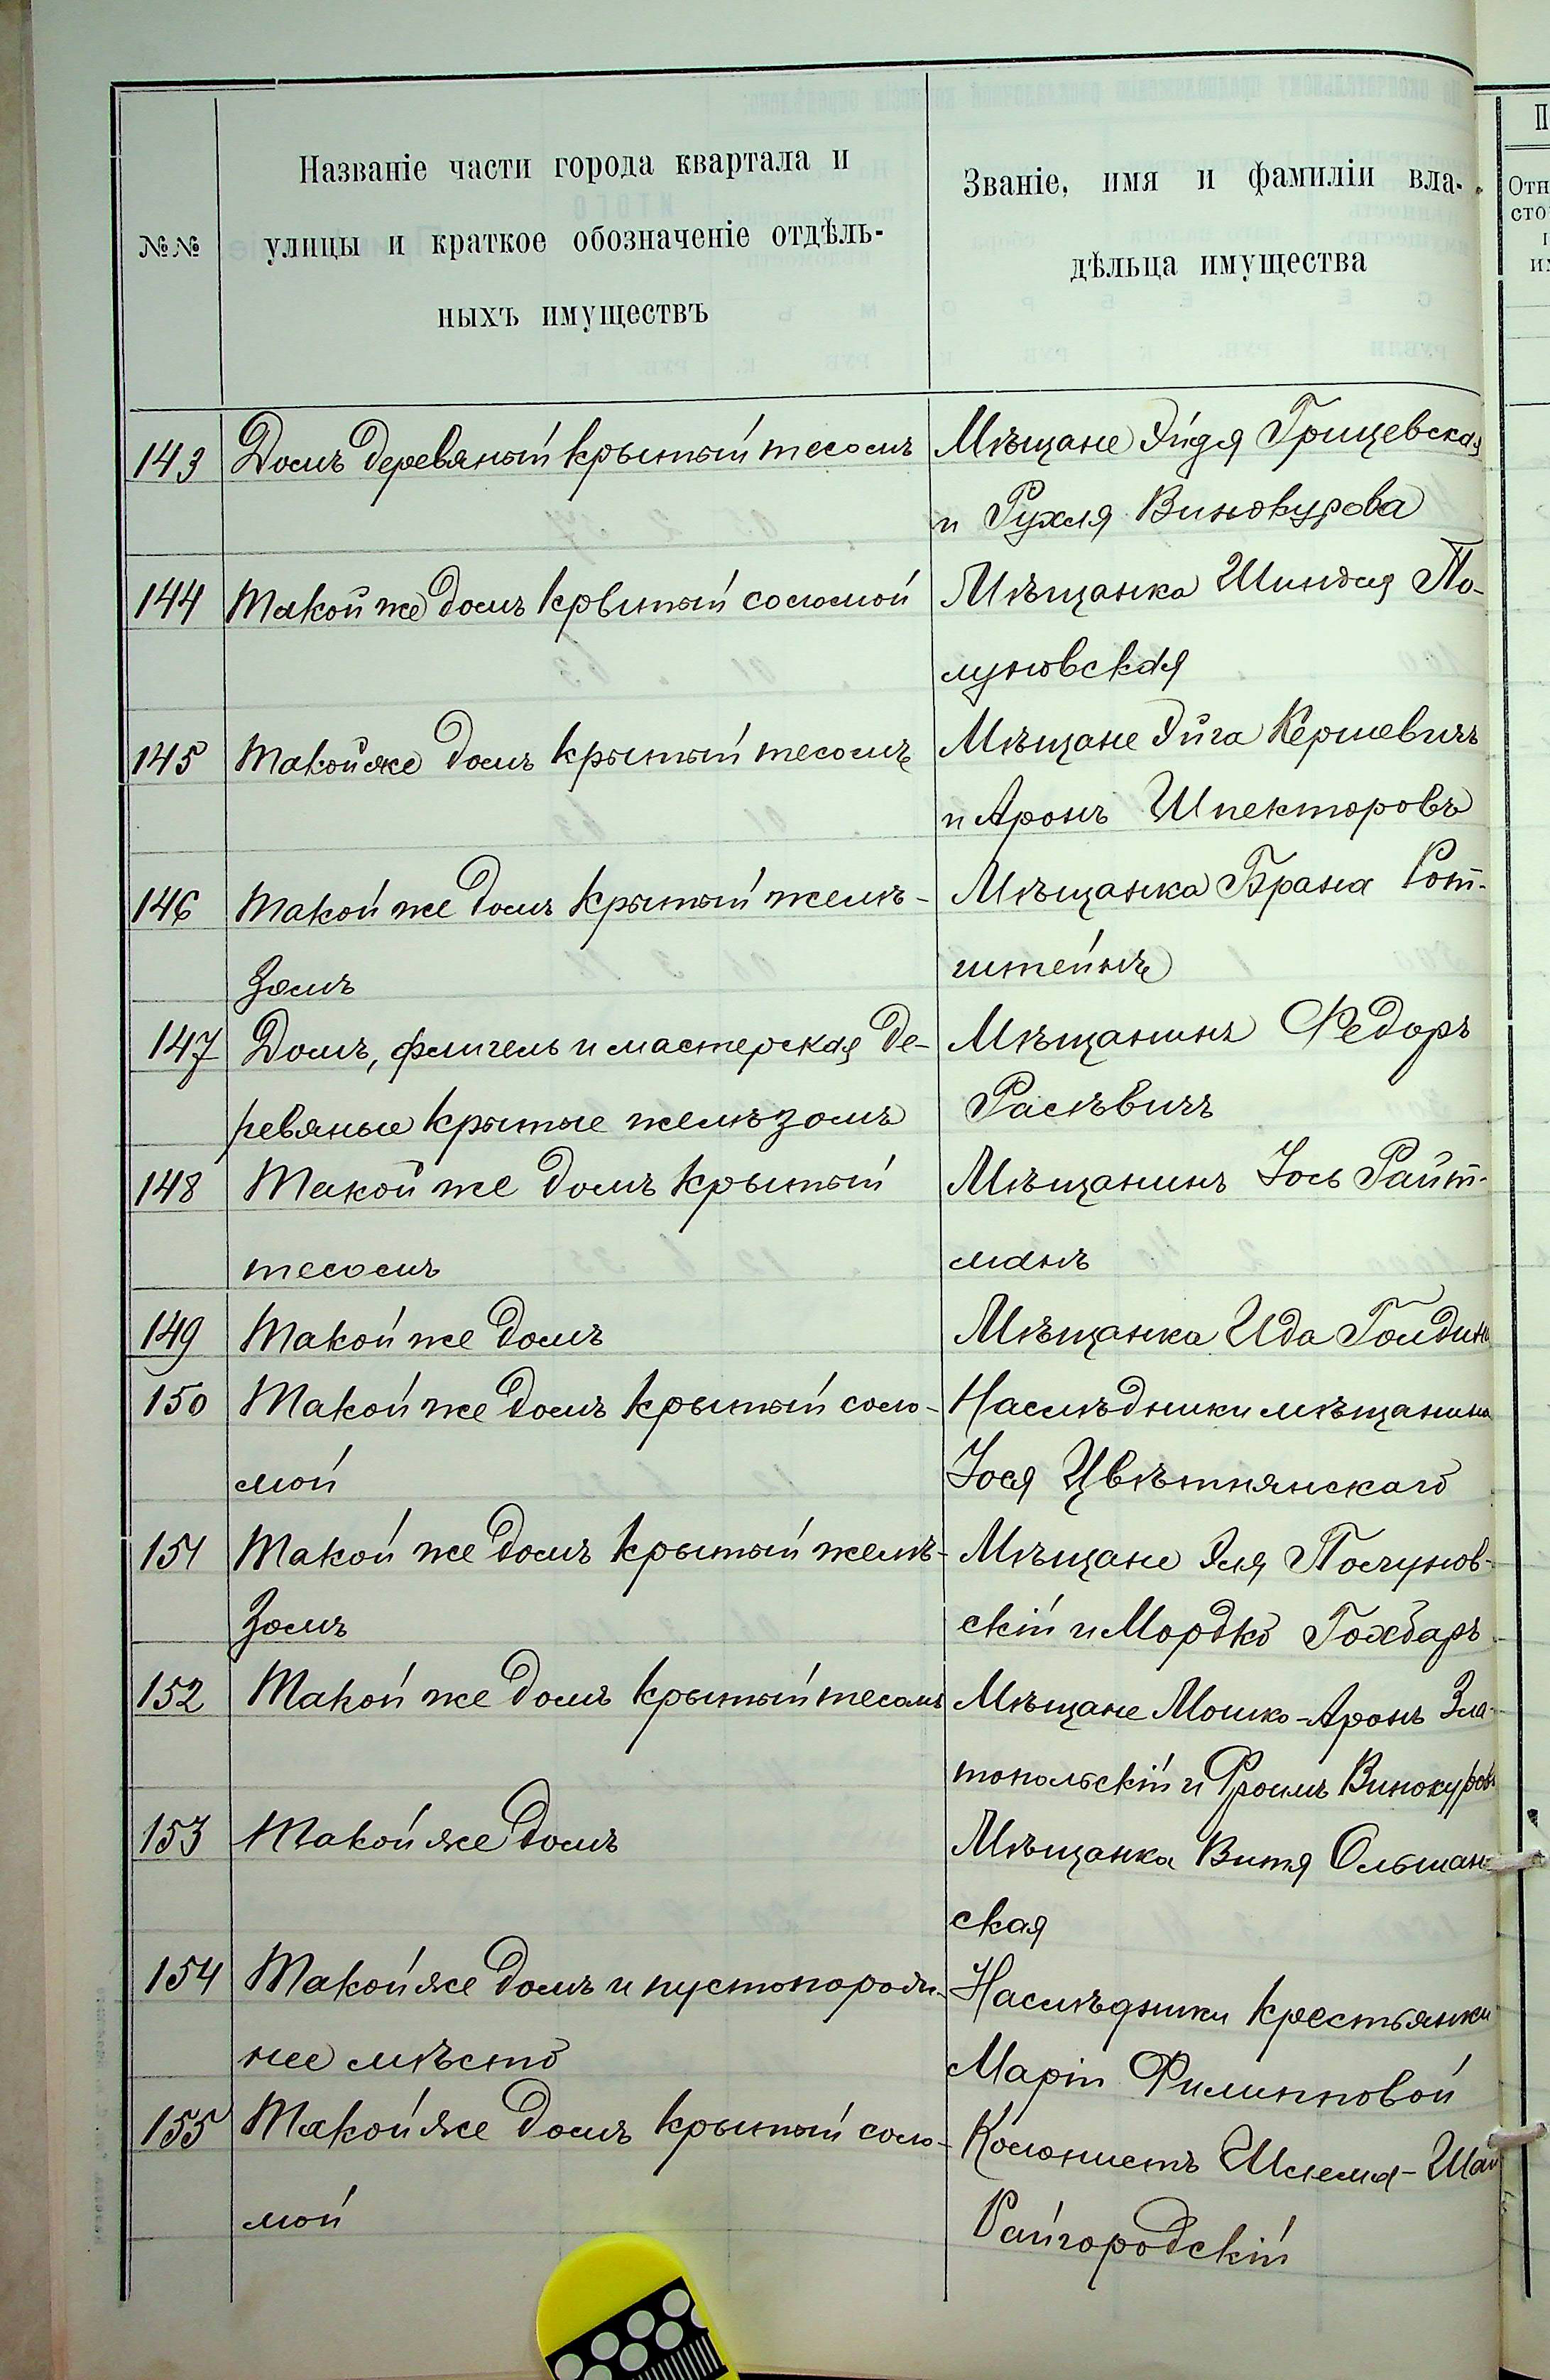 №№
Названіе части города квартала и
улицы и краткое обозначеніе отдѣль-
ныхъ имуществъ
Званіе, имя и фамиліи вла-
дѣльца имущества
143 Домъ деревяный крытый тесомъ Мѣщане Эйдя Грищевская
и Рухля Винокурова
144 Такой же домъ крытый соломой Мѣщанка Шиндля По-
луновская
145 Такой же домъ крытый тесомъ Мѣщане Эйга Кермевичъ
и Аронъ Шпекторовъ
146 Такой же домъ крытый желѣ- Мѣщанка Брана Рот-
зомъ штейнъ
147 Домъ, флигель и мастерская де- Мѣщанинъ Федоръ
ревяные крытые желѣзомъ Расѣвичъ
148 Такой же домъ крытый Мѣщанинъ Іось Райт-
тесомъ манъ
149 Такой же домъ Мѣщанка Ида Голдина
150 Такой же домъ крытый соло- Наслѣдники мѣщанина
мой Іося Цвѣтнянскаго
151 Такой же домъ крытый желѣ- Мѣщане Эля Полунов-
зомъ скій и Мордко Гохбаръ
152 Такой же домъ крытый тесомъ Мѣщане Мошко-Аронъ Зла-
топольскій и Фроимъ Винокуровъ
153 Такой же домъ Мѣщанка Витя Ольшан-
ская
154 Такой же домъ и пустопорож- Наслѣдники крестьянки
нее мѣсто Маріи Филипповой
155 Такой же домъ крытый соло- Колонистъ Шлема-
мой Райгородскій
П
Отн
сто